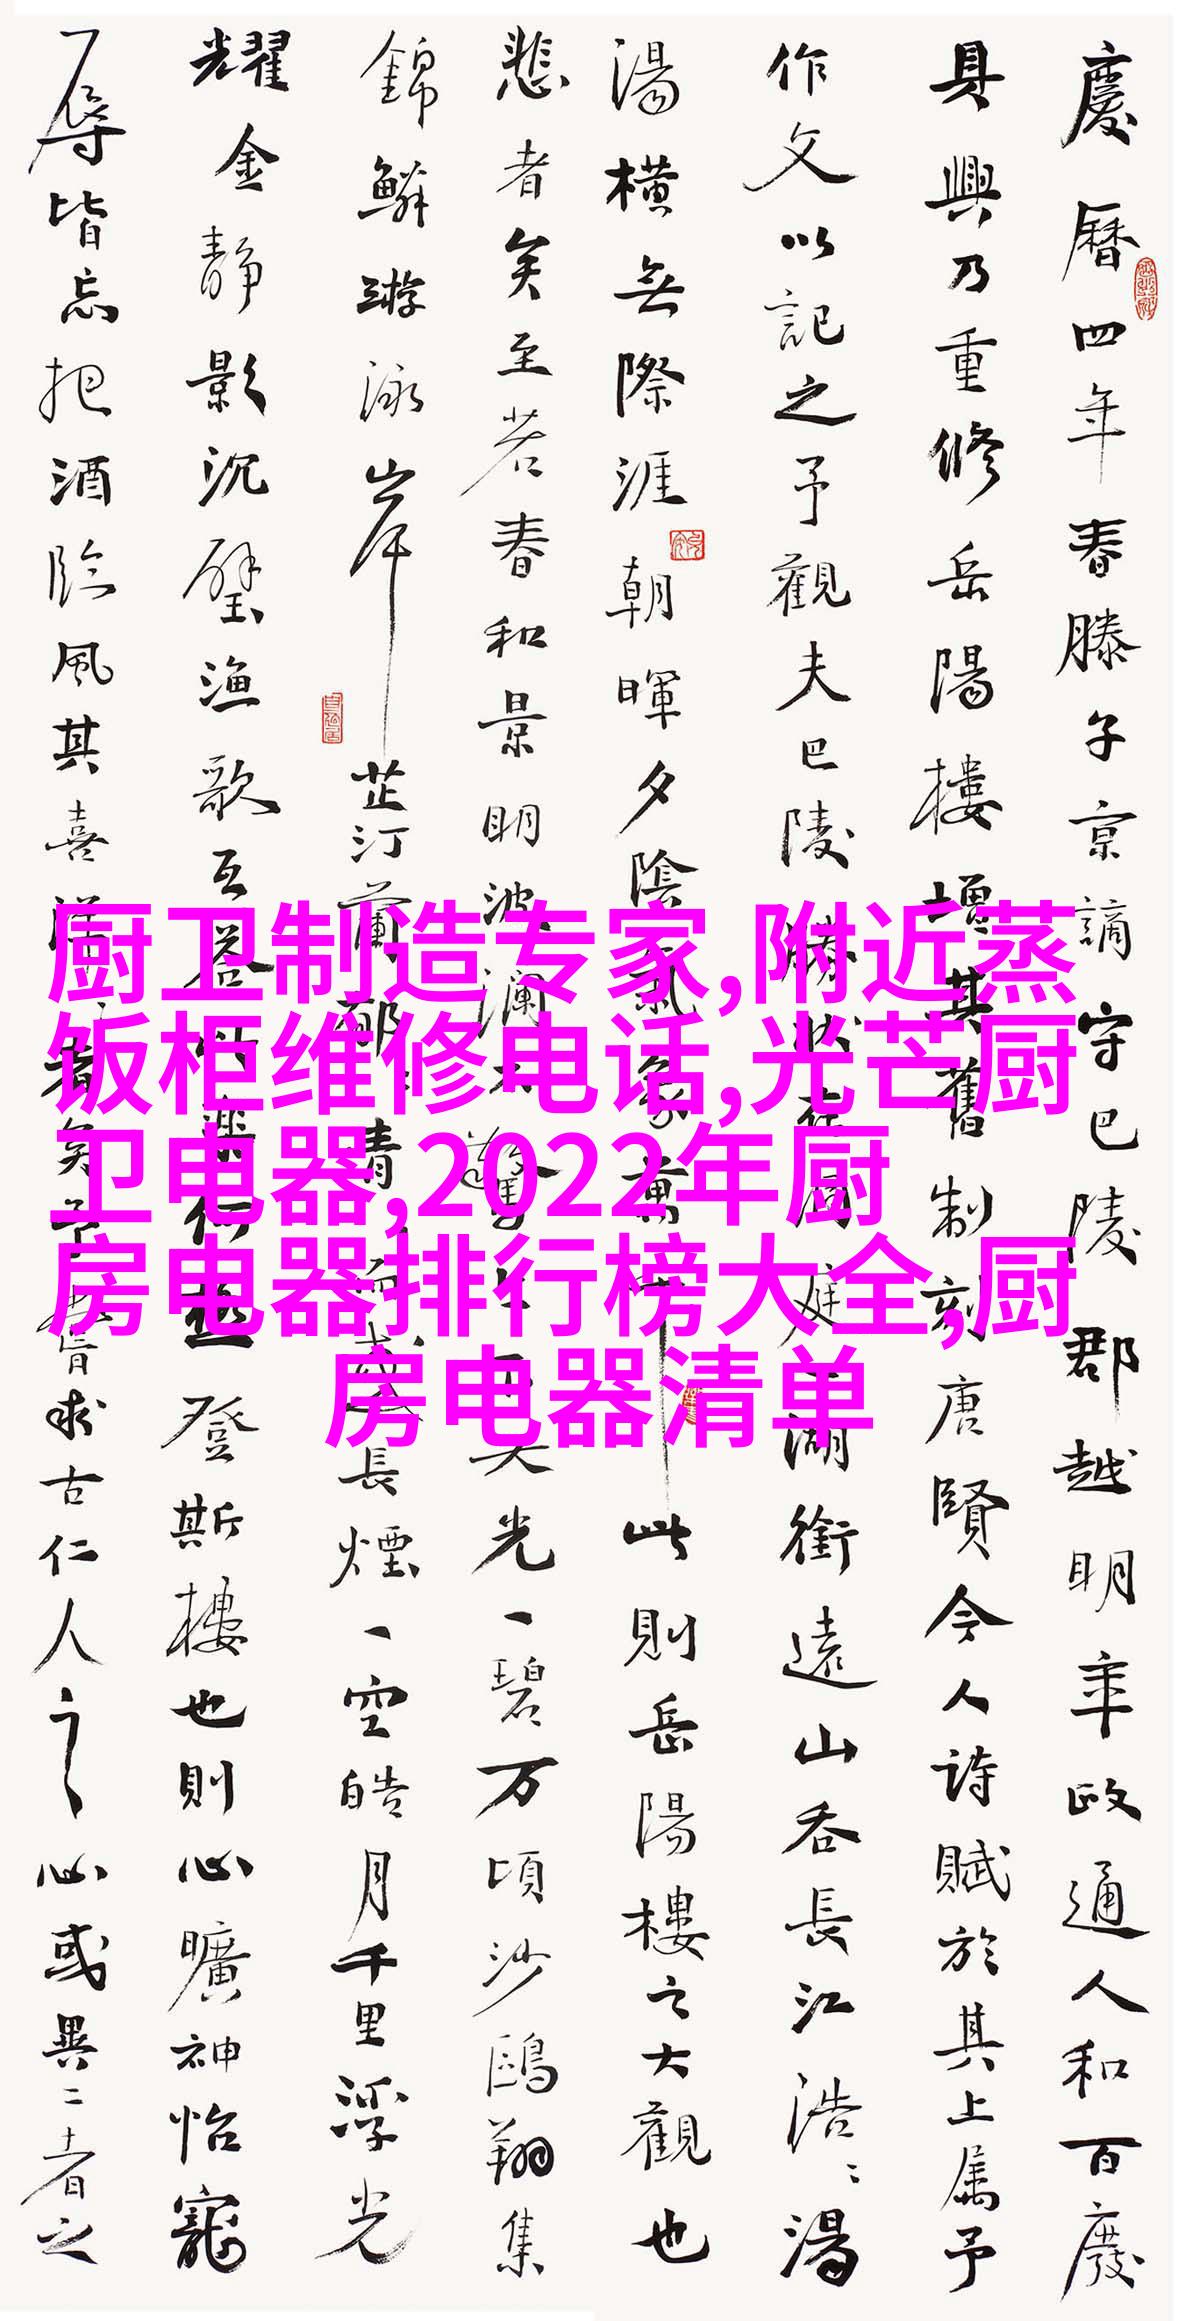 慶曆四年春滕子京謫守巴陵郡越明年政通人和百廢
具興乃重修岳陽樓增其舊制刻唐賢今人詩賦於其上属予
作文以記之予觀夫巴陵勝状在洞庭一湖銜遠山吞長江浩〻湯
湯橫無際涯朝暉夕陰氣象萬千此則岳陽樓之大觀也
悲者矣至若春和景明波瀾不驚上下天光一碧万頃沙鷗翔集
錦鱗游泳岸芷汀蘭郁〻青〻而或長煙一空皓月千里浮光
耀金静影沉璧漁歌互答此樂何極登斯樓也則心曠神怡寵
辱皆忘把酒臨風其喜洋〻者矣予嘗求古仁人之心或異二者之
厨卫制造专家,附近蒸
饭柜维修电话,光芒厨
卫电器,2022年厨
房电器排行榜大全,厨
房电器清单